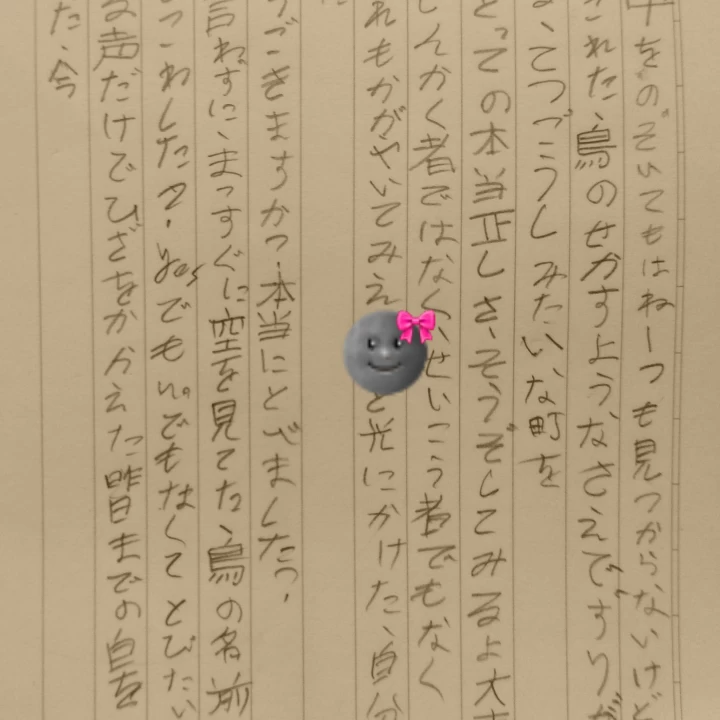 をのぞいてもはねーつも見つからないけど
これた、鳥のせかすようなさえずりが
てつづうしみたいな町を
とっての本当正しさ、そうぞしてみるよ大
しんかく者ではなく、せいこう者でもなく
れもかがやいてみえ と光にかけた、自分
うごきますかっ、本当にとべましたっ、
言わずに、まっすぐに空を見てた、鳥の名前
こわした?、yesでもnoでもなくてとびたい
る声だけでひざをかかえた昨日までの自を
た、今